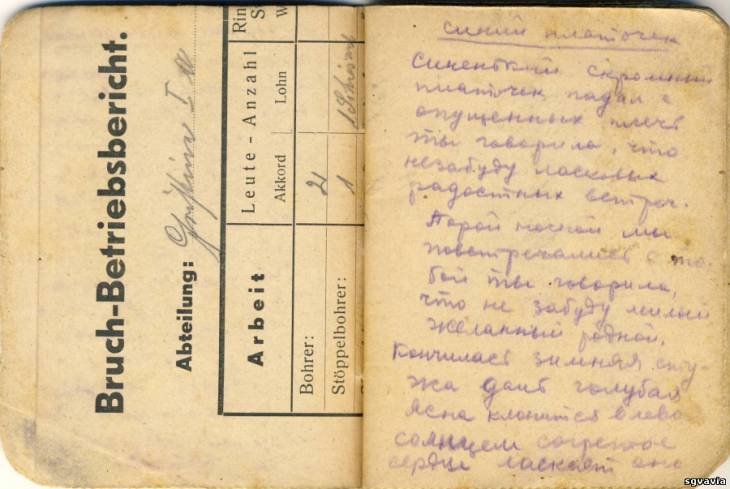 Bruch-Betriebsbericht.
Abteilung:
Arbeit
Leute-Anzahl
Akkord
Lohn
Rin
S
W
Bohrer:
2
Stöppelbohrer:
1
синий платочек
синенький скромный
платочек падал с
опущенных плечь
ты говорила, что
незабуду ласковых
радостных встреч.
Порой ночной мы
повстречалист с то
бой ты говорила,
что не забуду милый
желанный родной.
Кончиласт зимняя сту-
жа даит голубая
ясна клонится влево
солнцем согретое
сердце ласкает оно
sgvavia